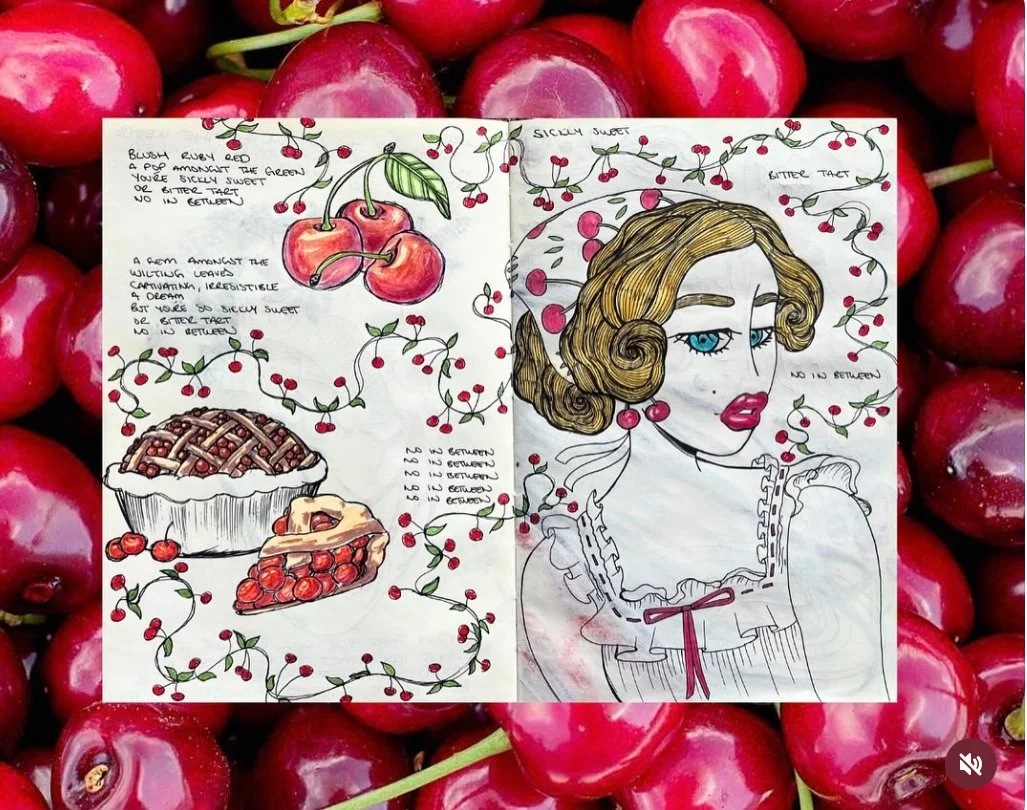 BLUSH RUBY RED
A POP AMONGST THE GREEN
YOU'RE SICKLY SWEET
OR BITTER TART
NO IN BETWEEN
A AMONGST THE
WILTING LEAVES
CAPTIVATING, IRRESISTIBLE
A DREAM
BUT YOU'RE SO SICKLY SWEET
OR BITTER TART
NO IN BETWEEN
NO IN BETWEEN
NO IN BETWEEN
NO IN BETWEEN
NO IN BETWEEN
NO IN BETWEEN
SICKLY SWEET
BITTER TART
NO IN BETWEEN